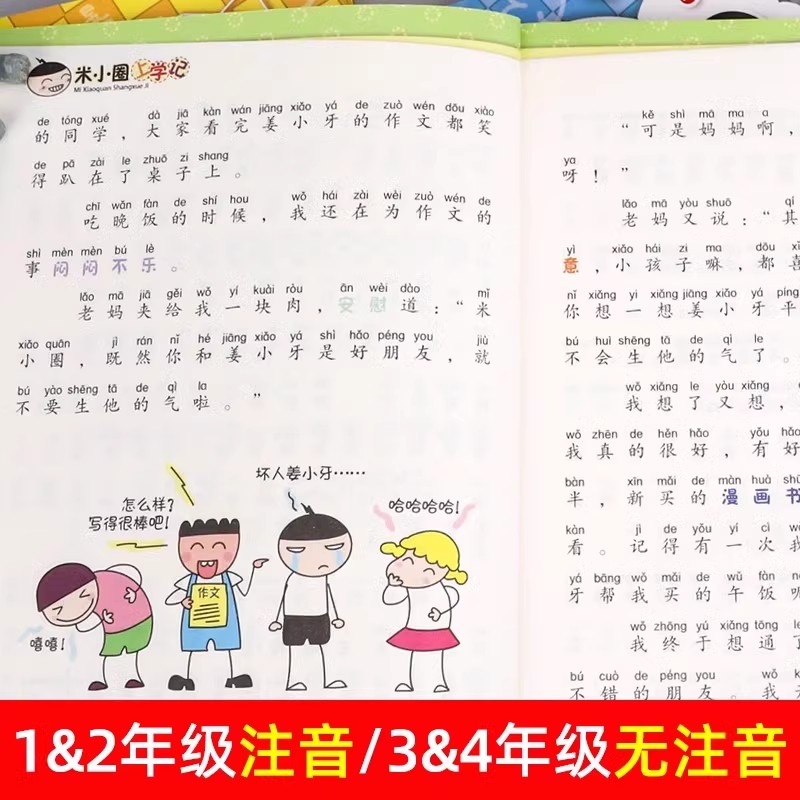 米小圈上学记
Mi Xiaoquan Shangxue Ji
de tóng xué dà jiā kàn wán jiāng xiǎo yá de zuò wén dōu xiào
的同学，大家看完姜小牙的作文都笑
de pā zài le zhuō zi shang
得趴在了桌子上。
chī wǎn fàn de shí hou wǒ hái zài wèi zuò wén de
吃晚饭的时候，我还在为作文的
shì mèn mèn bú lè
事闷闷不乐。
lǎo mā jiā gěi wǒ yí kuài ròu ān wèi dào mǐ
老妈夹给我一块肉，安慰道：“米
xiǎo quān jì rán nǐ hé jiāng xiǎo yá shì hǎo péng you jiù
小圈，既然你和姜小牙是好朋友，就
bú yào shēng tā de qì la
不要生他的气啦。”
坏人姜小牙……
怎么样？
写得很棒吧！
哈哈哈哈！
作文
嘻嘻！
kě shì mā ma a
“可是妈妈啊，
ya
呀！”
lǎo mā yòu shuō qí
老妈又说：“其
yì xiǎo hái zi ma dōu xǐ
意，小孩子嘛，都喜
nǐ xiǎng yi xiǎng jiāng xiǎo yá píng
你想一想姜小牙平
bú huì shēng tā de qì le
不会生他的气了。
wǒ xiǎng le yòu xiǎng
我想了又想，
wǒ zhēn de hěn hǎo yǒu hǎo
我真的很好，有好
bàn xīn mǎi de màn huà shū
半，新买的漫画书
kàn jì de yǒu yí cì wǒ
看。记得有一次我
yá bāng wǒ mǎi de wǔ fàn ne
牙帮我买的午饭呢
wǒ zhōng yú xiǎng tōng le
我终于想通了
bú cuò de péng you wǒ
不错的朋友。我
1&2年级注音/3&4年级无注音